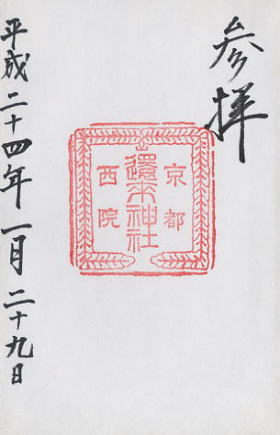 参拝
京都
還来神社
西院
平成二十四年一月二十九日